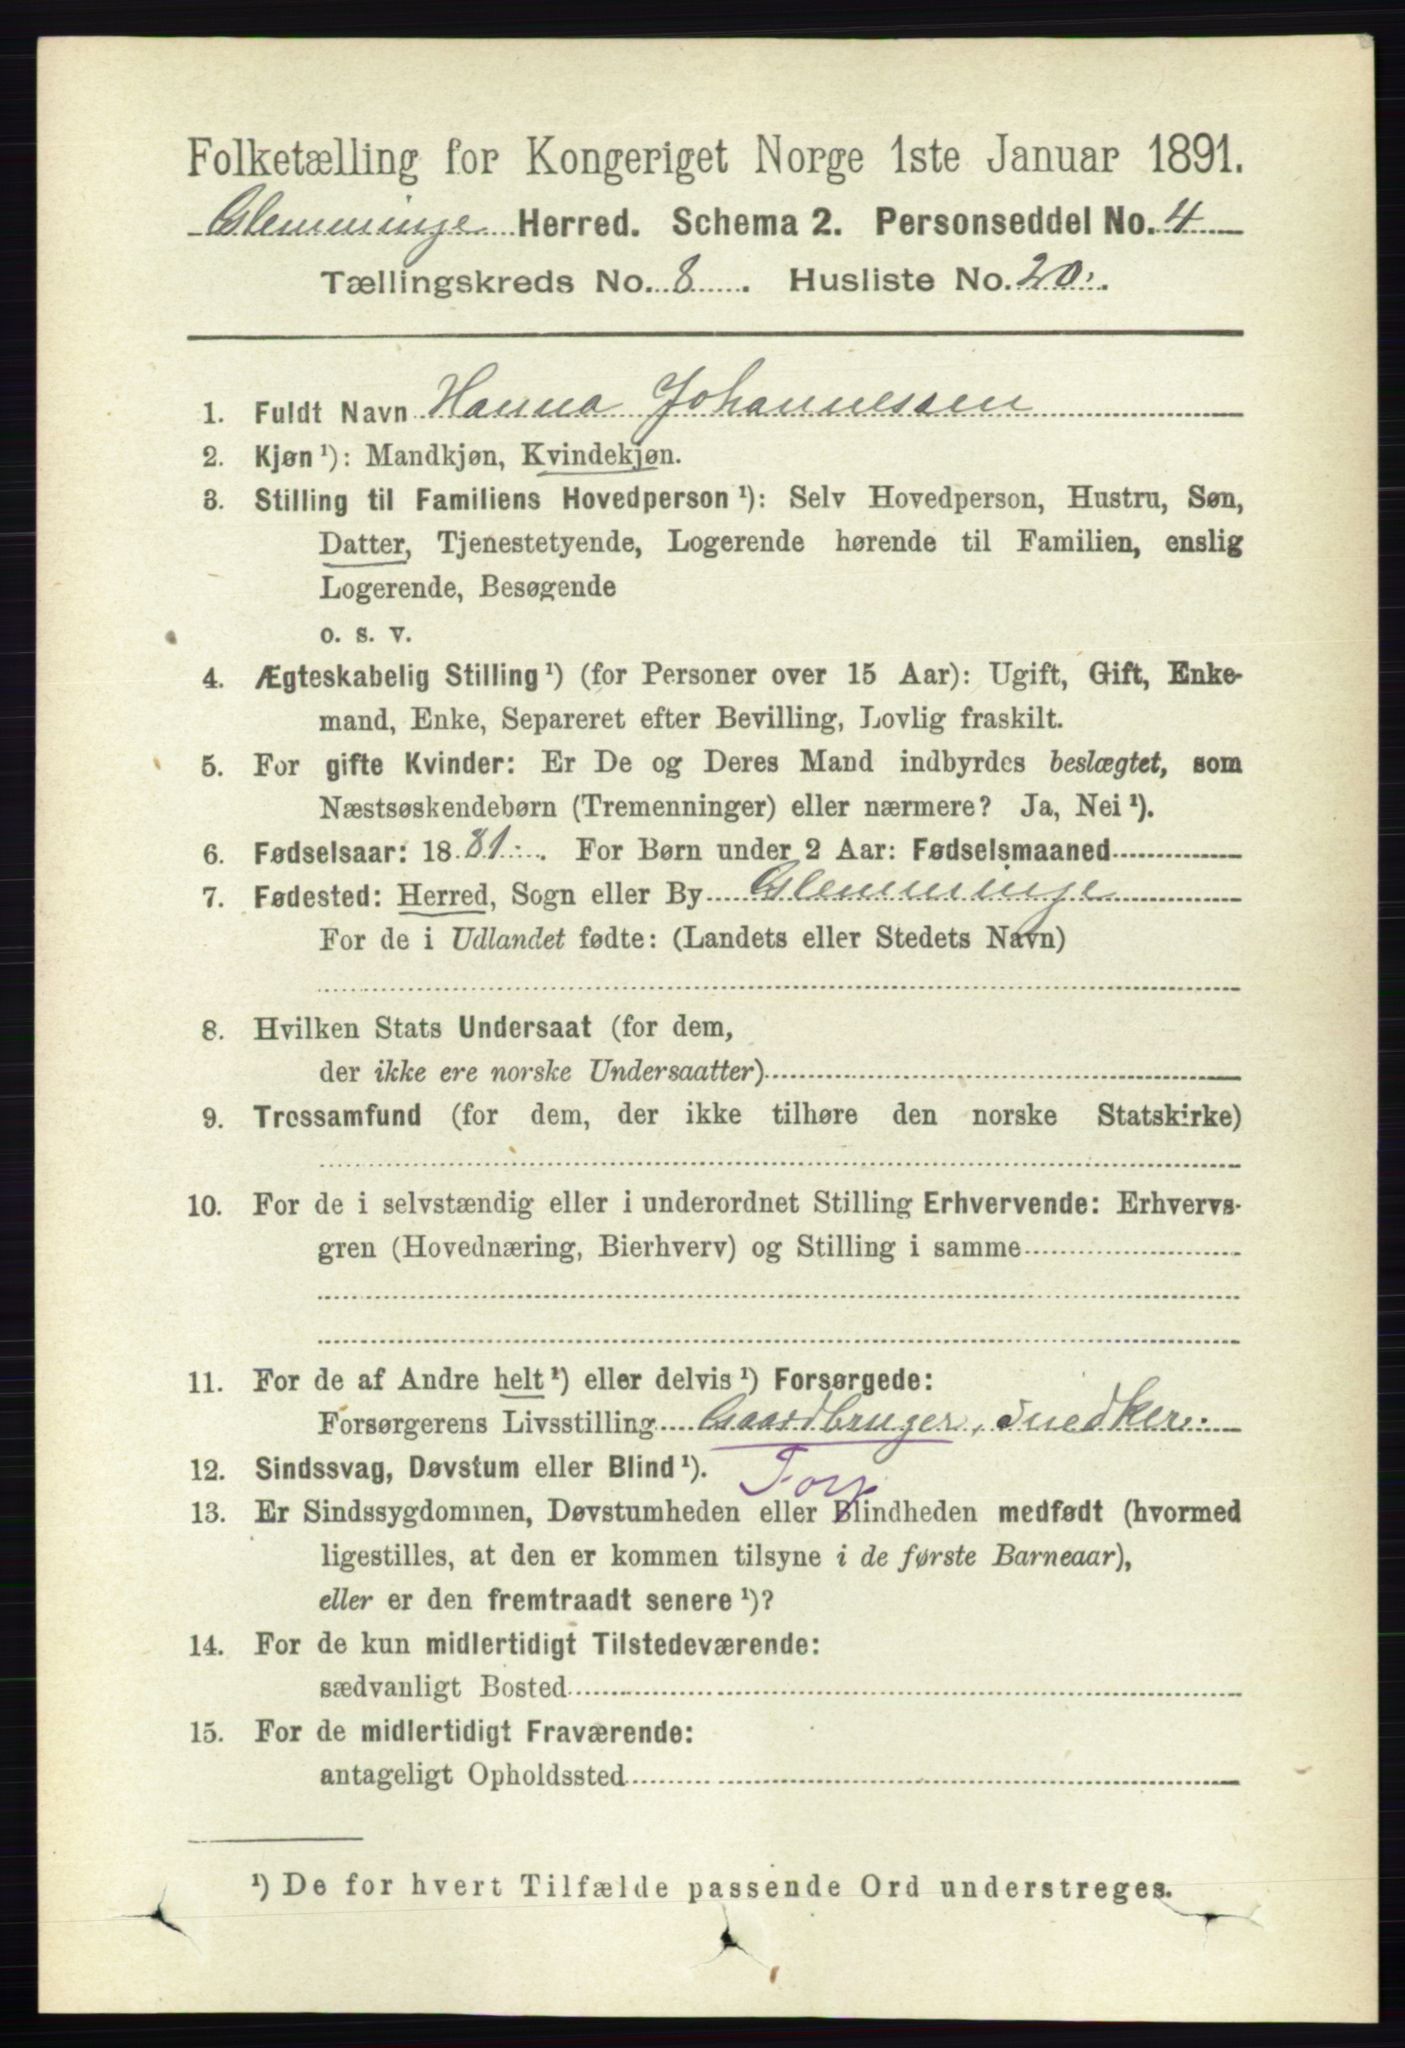 Folketælling for Kongeriget Norge 1ste Januar 1891.
Glemminge Herred. Schema 2. Personseddel No. 4
Tællingskreds No. 8. Husliste No. 20.
1. Fuldt Navn Hanna Johannessen
2. Kjøn ¹): Mandkjøn, Kvindekjøn.
3. Stilling til Familiens Hovedperson ¹): Selv Hovedperson, Hustru, Søn,
Datter, Tjenestetyende, Logerende hørende til Familien, enslig
Logerende, Besøgende
o. s. v.
4. Ægteskabelig Stilling ¹) (for Personer over 15 Aar): Ugift, Gift, Enke-
mand, Enke, Separeret efter Bevilling, Lovlig fraskilt.
5. For gifte Kvinder: Er De og Deres Mand indbyrdes beslægtet, som
Næstsøskendebørn (Tremenninger) eller nærmere? Ja, Nei ¹).
6. Fødselsaar: 18 81. For Børn under 2 Aar: Fødselsmaaned
7. Fødested: Herred, Sogn eller By Glemminge
For de i Udlandet fødte: (Landets eller Stedets Navn)
8. Hvilken Stats Undersaat (for dem,
der ikke ere norske Undersaatter)
9. Trossamfund (for dem, der ikke tilhøre den norske Statskirke)
10. For de i selvstændig eller i underordnet Stilling Erhvervende: Erhvervs-
gren (Hovednæring, Bierhverv) og Stilling i samme
11. For de af Andre helt ¹) eller delvis ¹) Forsørgede:
Forsørgerens Livsstilling Gaardbruger, Snedker.
12. Sindssvag, Døvstum eller Blind ¹).
13. Er Sindssygdommen, Døvstumheden eller Blindheden medfødt (hvormed
ligestilles, at den er kommen tilsyne i de første Barneaar),
eller er den fremtraadt senere ¹)?
14. For de kun midlertidigt Tilstedeværende:
sædvanligt Bosted
15. For de midlertidigt Fraværende:
antageligt Opholdssted
¹) De for hvert Tilfælde passende Ord understreges.